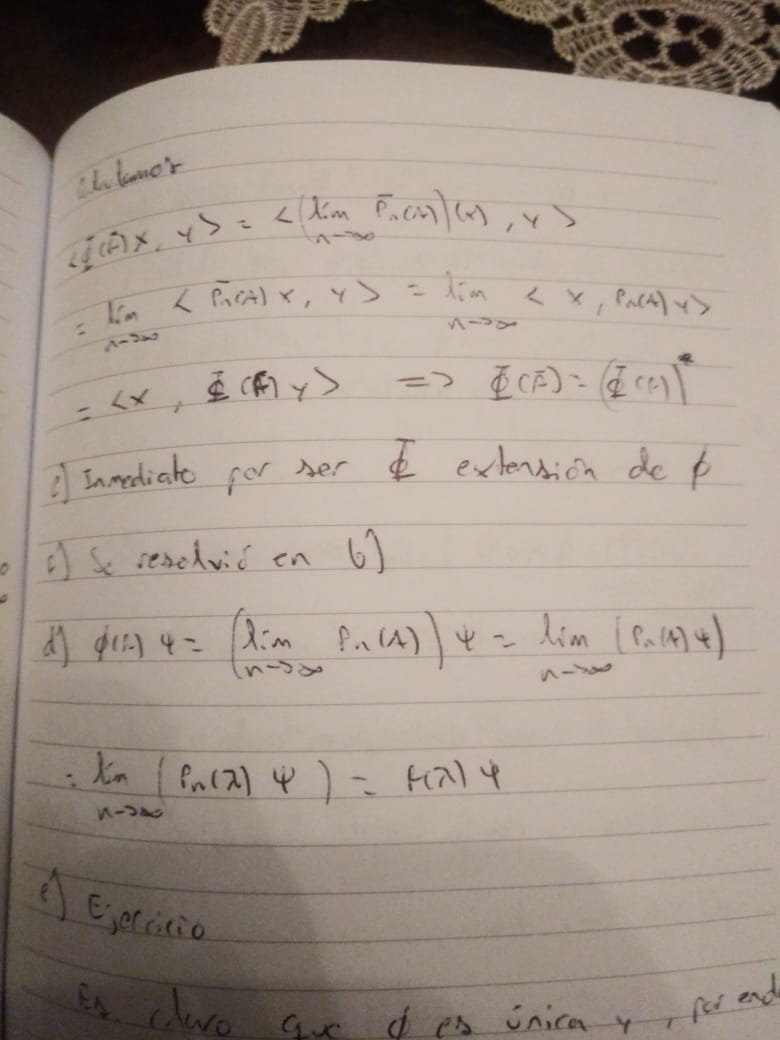 Calculamos
<Φ(f̄)x, y> = <(lim n→∞ P̄n(A))(x), y>
= lim n→∞ <P̄n(A)x, y> = lim n→∞ <x, Pn(A)y>
= <x, Φ(f)y> => Φ(f̄) = (Φ(f))*
Inmediato por ser Φ extensión de φ
c) Se resolvió en b)
d) φ(f)ψ = (lim n→∞ Pn(A))ψ = lim n→∞ (Pn(A)ψ)
= lim n→∞ (Pn(λ)ψ) = f(λ)ψ
e) Ejercicio
Es claro que φ es única y, por ende